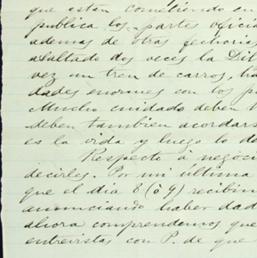 que estan cometiendo en
publica los partes oficia
ademas de otras fechorias
asaltado dos veces la Dil
vez un tren de carros, ha
dades enormes con los p
Mucho cuidado deben t
deben tambien acordars
es la vida y luego lo de
Respecto á negoci
decirles. Por mi última
que el dia 8 (ó 9) recibim
anunciando haber dad
ahora comprendemos que
entrevistas con P. de que